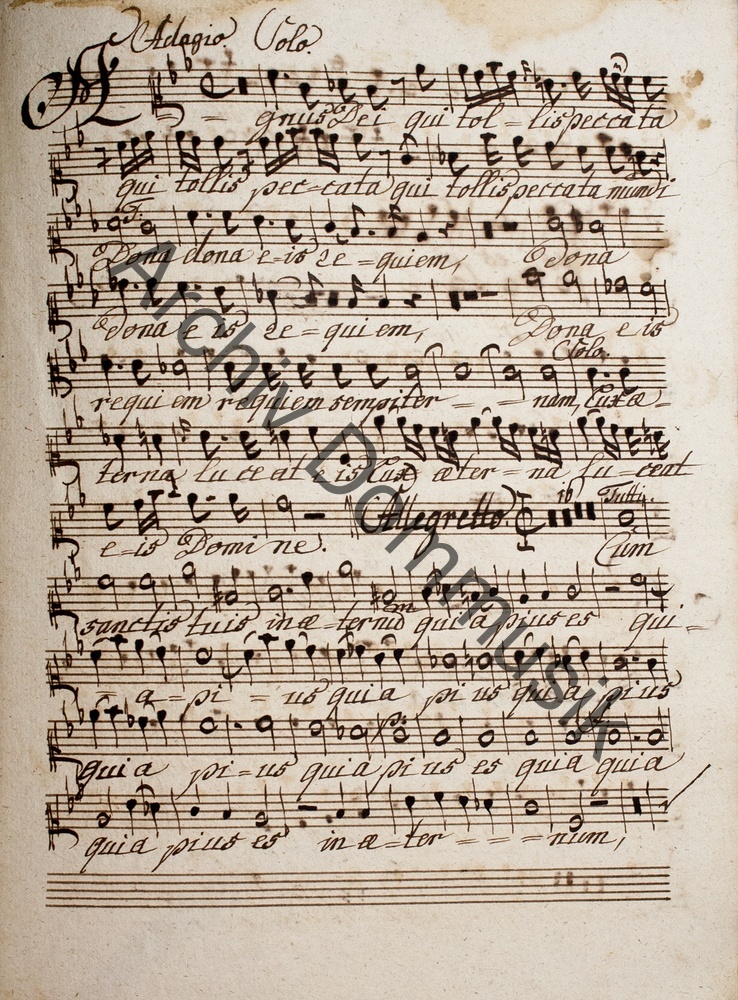 Adagio. Solo.
Agnus Dei qui tol = lis peccata
qui tollis pec = cata qui tollis peccata mundi
T.
Dona dona e = is re = quiem, Dona
dona e is re = qui em, Dona e is
Solo.
requi em requiem sempiter = = nam, Lux æ =
terna lu ce at e is Lux æter = na lu = ceat
Allegretto 16 Tutti.
e = is Domi ne. Cum
sanctis tuis in æ = ternum qui a pius es qui =
= a = pi = us qui a pi us qui a pi us
p:
qui a pi = us qui a pi us es qui a qui a
qui a pius es in æ = ter = = = num,
Archiv Dommusik